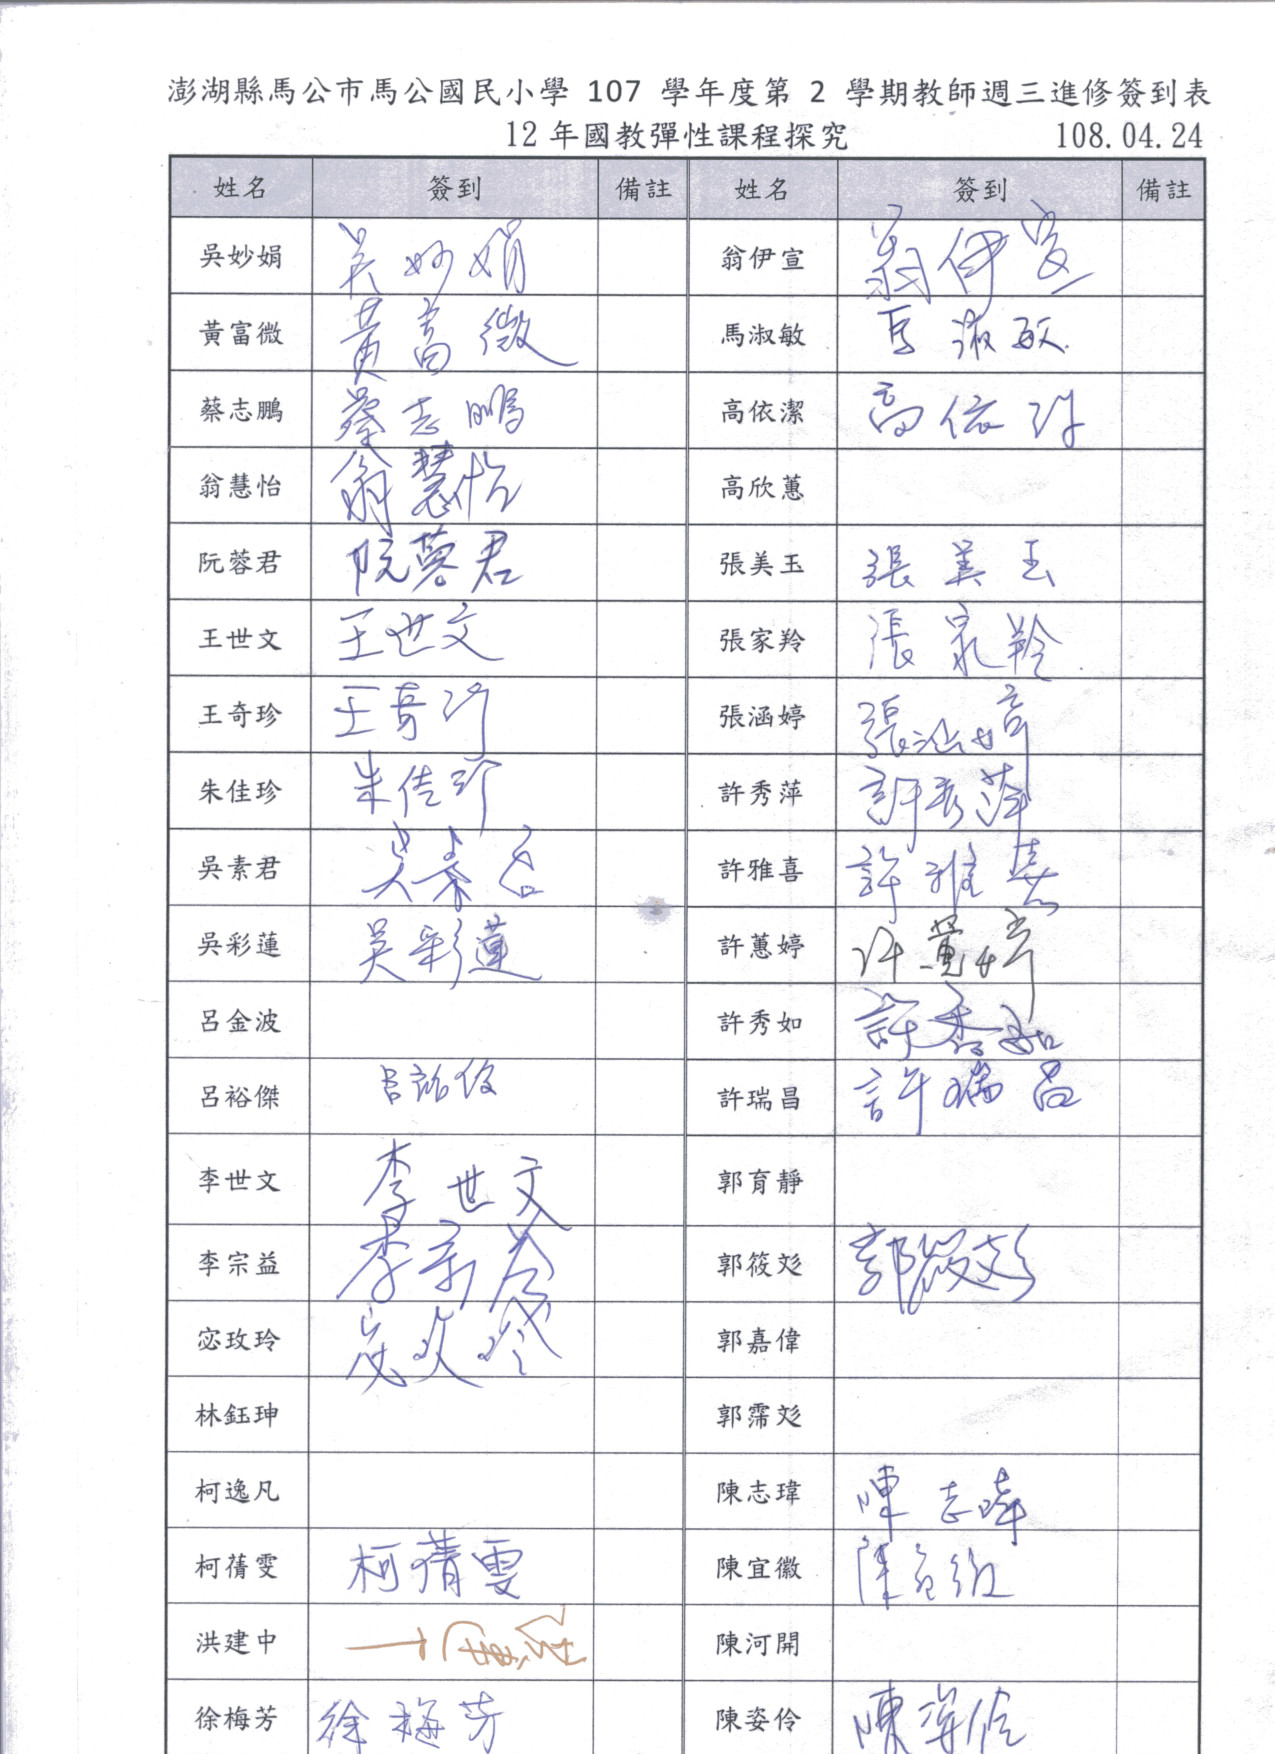 澎湖縣馬公市馬公國民小學 107 學年度第 2 學期教師週三進修簽到表
12 年國教彈性課程探究 108.04.24
姓名 簽到 備註 姓名 簽到 備註
吳妙娟 吳妙娟 翁伊宣 翁伊宣
黃富微 黃富微 馬淑敏 馬淑敏
蔡志鵬 蔡志鵬 高依潔 高依
翁慧怡 翁慧怡 高欣蕙
阮蓉君 阮蓉君 張美玉 張美玉
王世文 王世文 張家羚 張家羚
王奇珍 王奇珍 張涵婷 張涵婷
朱佳珍 朱佳珍 許秀萍 許秀萍
吳素君 吳素君 許雅喜 許雅喜
吳彩蓮 吳彩蓮 許蕙婷 许蕙婷
呂金波 許秀如 許秀如
呂裕傑 呂裕 許瑞昌 許瑞昌
李世文 李世文 郭育靜
李宗益 李宗益 郭筱彣 郭筱彣
宓玫玲 宓玫玲 郭嘉偉
林鈺珅 郭霈彣
柯逸凡 陳志瑋 陳志瑋
柯蒨雯 柯蒨雯 陳宜徽 陳宜徽
洪建中 陳河開
徐梅芳 徐梅芳 陳姿伶 陳姿伶